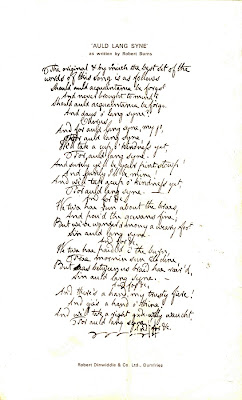 'AULD LANG SYNE'
as written by Robert Burns
The original & by much the best set of the
words of this song is as follows
Should auld acquaintance be forgot
And never brought to mind?
Should auld acquaintance be forgot
And days o' lang syne?
Chorus
And for auld lang syne, my jo,
For auld lang syne
We'll tak a cup o' kindness yet
For auld lang syne
And surely ye'll be your pint stoup!
And surely I'll be mine!
And we'll tak a cup o' kindness yet,
For auld lang syne
And for &c
We twa hae run about the braes
And pou'd the gowans fine;
But we've wander'd mony a weary
Sin auld lang syne
And for &c.
We twa hae paidl'd in the burn,
morning sun dine
But seas between us braid hae roar'd,
Sin auld lang syne
And for &c.
And there's a hand, my trusty fiere!
And gie's a hand o' thine!
And we'll tak a right gude-willy waught,
For auld lang syne
And for &c.
Robert Dinwiddie & Co. Ltd., Dumfries